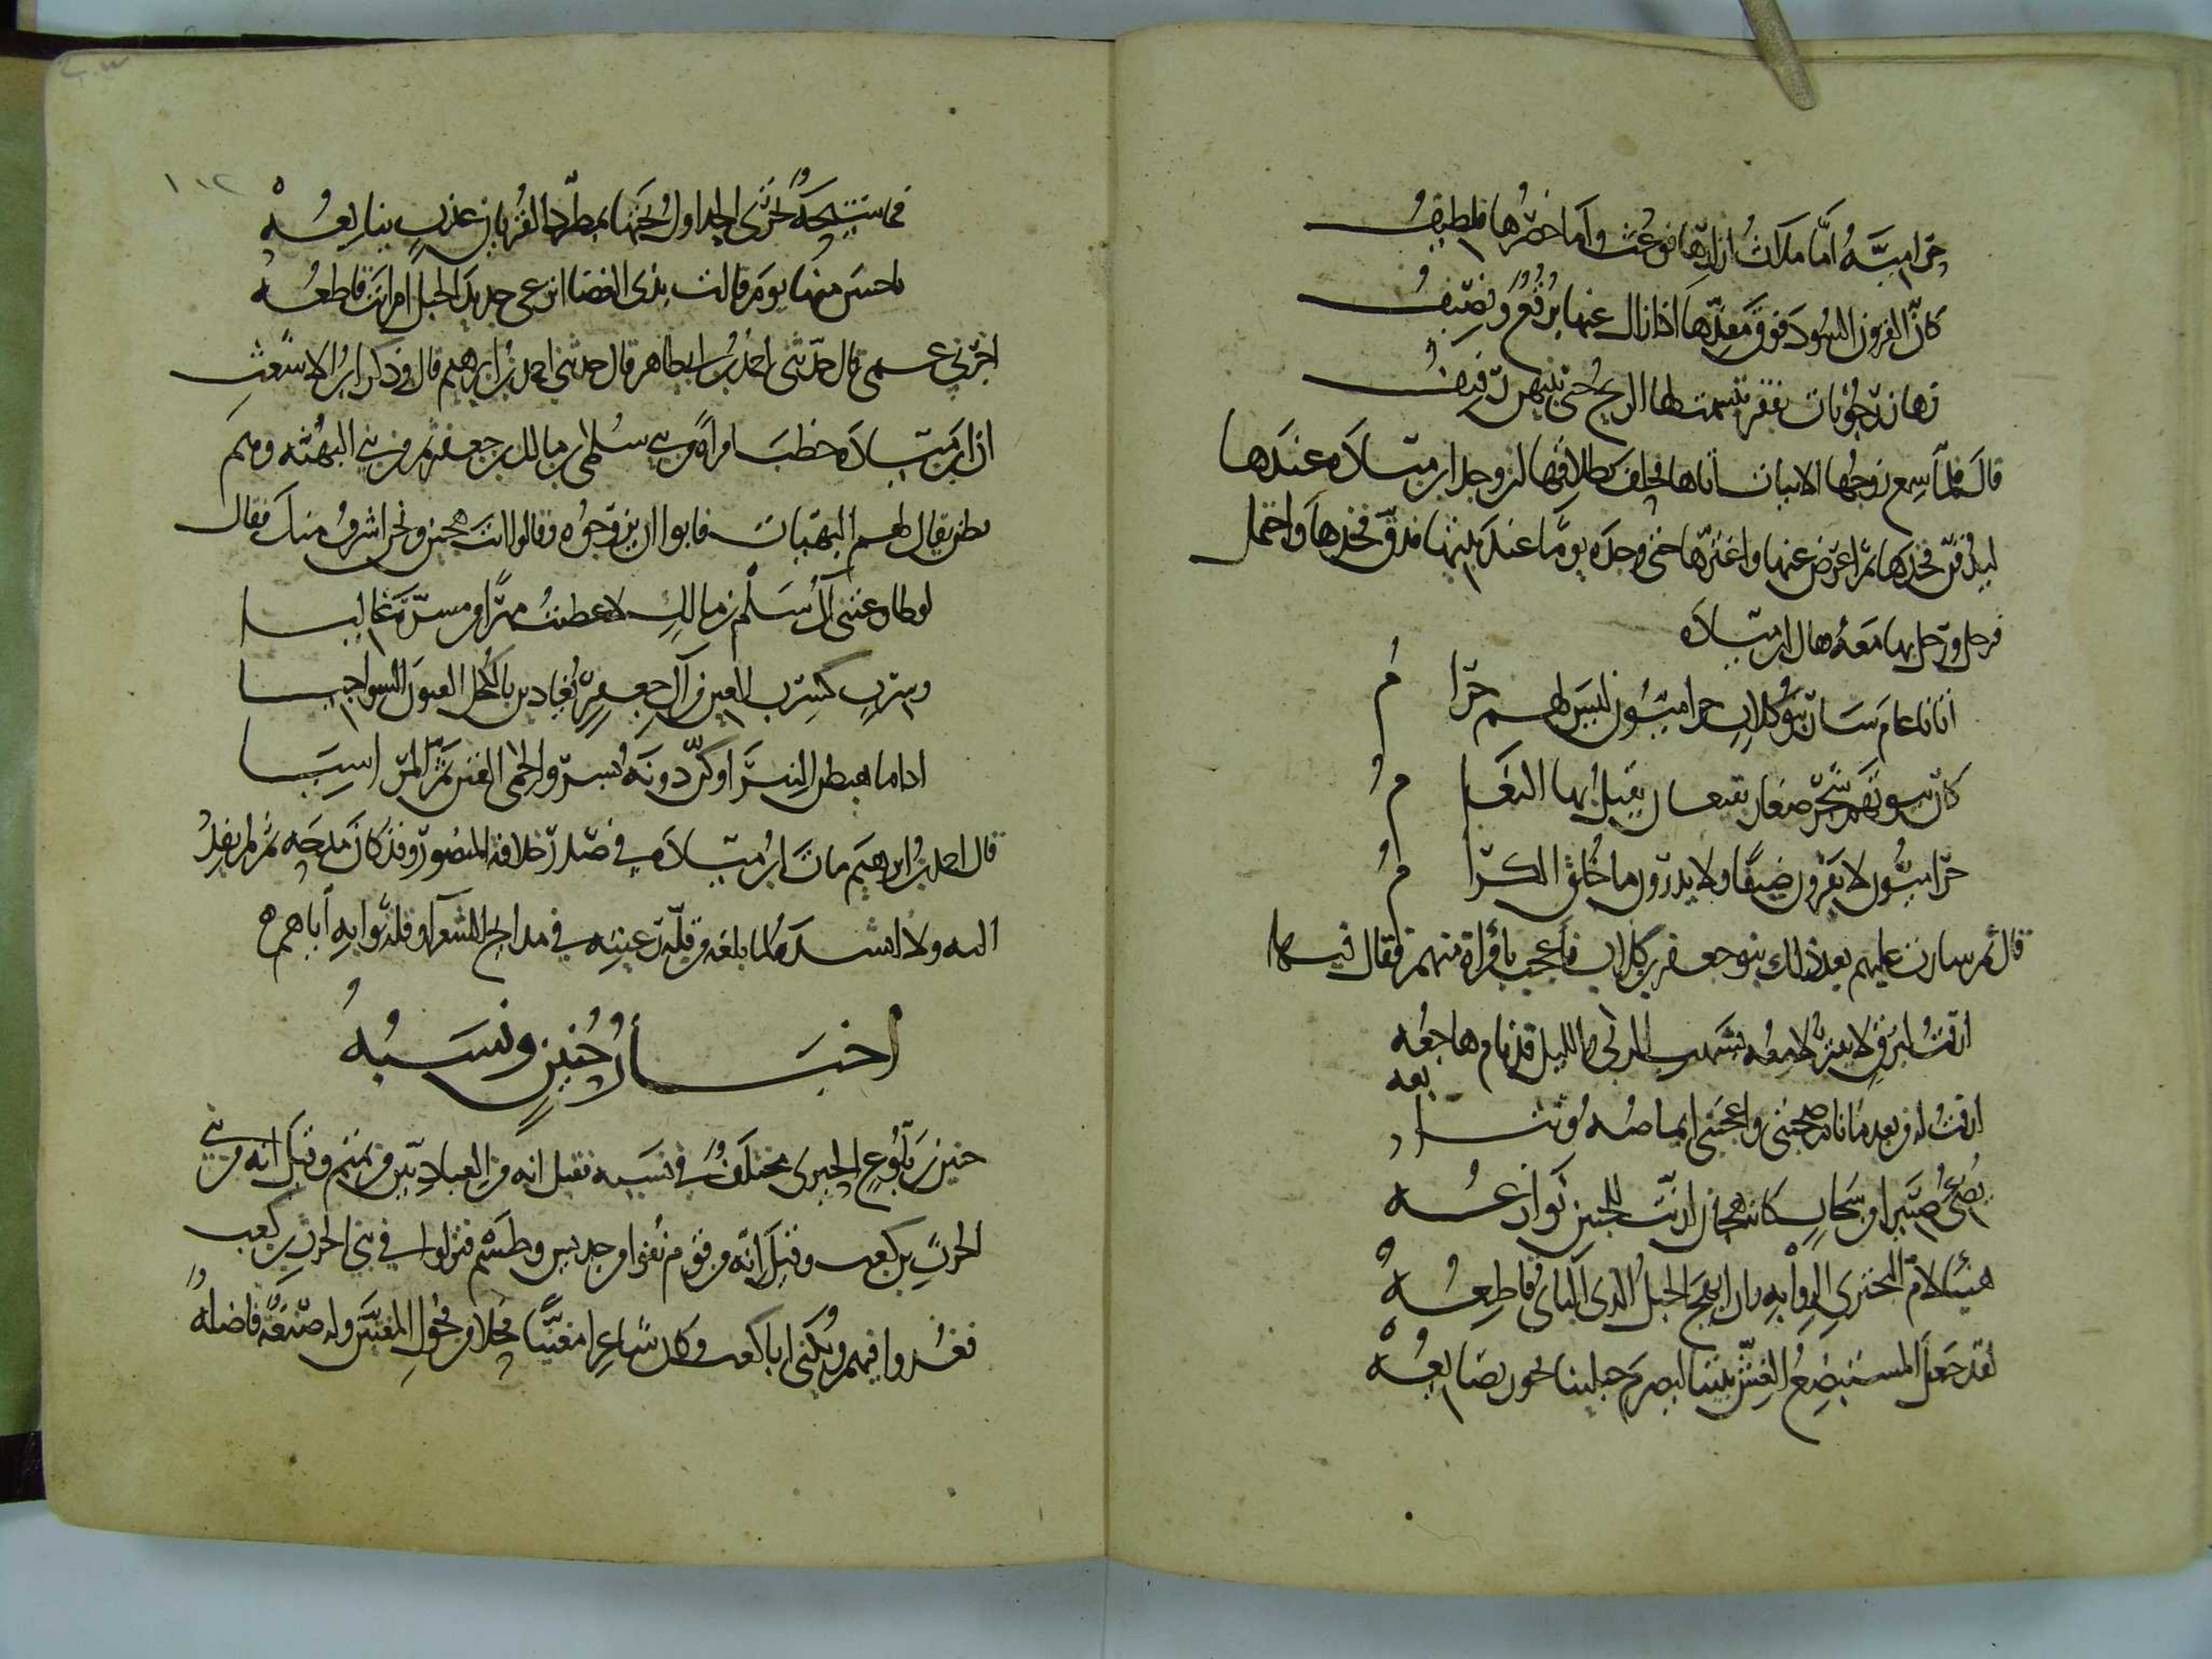 حراميّةٌ أمّا ملاثُ ازارها فوعثٌ وأمّا خصرها فلطيفُ
كانّ القرون السود فوق مقذّها اذا زال عنها برقعٌ ونصيفُ
بها زرجونات بقفر تنسمت لها الريح حتى بينهن رفيفُ
قال فلمّا سمع زوجها الابيات اتاها فحلف بطلاقها لئن وجد ابن ميّادة عندها
ليدقّن فخذها ثم اعرض عنها واغترّها حتى وجده يوما عند بيتها فدقّ فخذها واحتمل
فرحل ورحل بها معه فقال ابن ميّادة
اتانا عام سار بنو كلاب حراميّون ليس لهم حرا مُ
كان بيوتهم شجر صغار بقيعان يقيل بها النعا مُ
حراميّون لا يقرون ضيفا ولا يدرون ما خُلُق الكرا مُ
قال ثم سارت عليهم بعد ذلك بنو جعفر بن كلاب فاعجب بامرأة منهم فقال فيها
ارقت لبرق لا يفتّر لامعه بشهب الربى والليل قد نام هاجعه
ارقت له من بعد ما نام صحبتي واعجبني ايماضه وتتا بعه
يضيء صبيرا من سحاب كانه هجان ارنّت للحنين نوازعه
هنيئا لام البختري الروا به وان انهج الحبل الذي الناي قاطعه
لقد جعل المستبضع الغش بيننا ليصرم حبلينا تجوز بضايعه
١٠٢
فما سنسحة تجرى الجداول تحتها بمطّرد القريان عذب ينابعه
باحسن منها يوم قالت بذى الغضا اترعى جديد الحبل ام انت قاطعه
اخبرني عمى قال حدثني احمد بن ابي طاهر قال حدثني احمد بن ابرهيم قال وذكر ابو الاشعث
ان ابن ميّادة خطب امراة من بني سلمى بن مالك بن جعفر ثم من بني البهثه وهم
بطن يقال لهم البهثات فابوا ان يزوجوه وقالوا انت هجين ونحن اشرف منك فقال
لو طاوعتني آل سلمى بن مالك لاعطيت مهرا من مسرّة غاليا
وسرب كسرب العين من آل جعفر يغادين بالكحل العيون السواجيا
اذا ما هبطن النيّر او كن دونه بسرّو الحمى القين ثم المراسيا
قال احمد بن ابرهيم مات ابن ميّادة في صدر خلافة المنصور وقد كان مدحه ثم لم يفد
اليه ولا انشده لما بلغه من قلة رغبته في مدايح الشعرآء وقلة ثوابه اياهم
اخبار حُنين ونسبُه
حنين بن بلّوع الحيرى مختلف في نسبه فقيل انه من العباديين من تميم وقيل انه من بني
الحرث بن كعب وقيل انه من قوم بقوا من جديس وطسم فنزلوا في بني الحرث بن كعب
فعُدّوا فيهم ويُكنى ابا كعب وكان شاعرا مغنّيا فحلا من فحول المغنين وله صنعة فاضلة